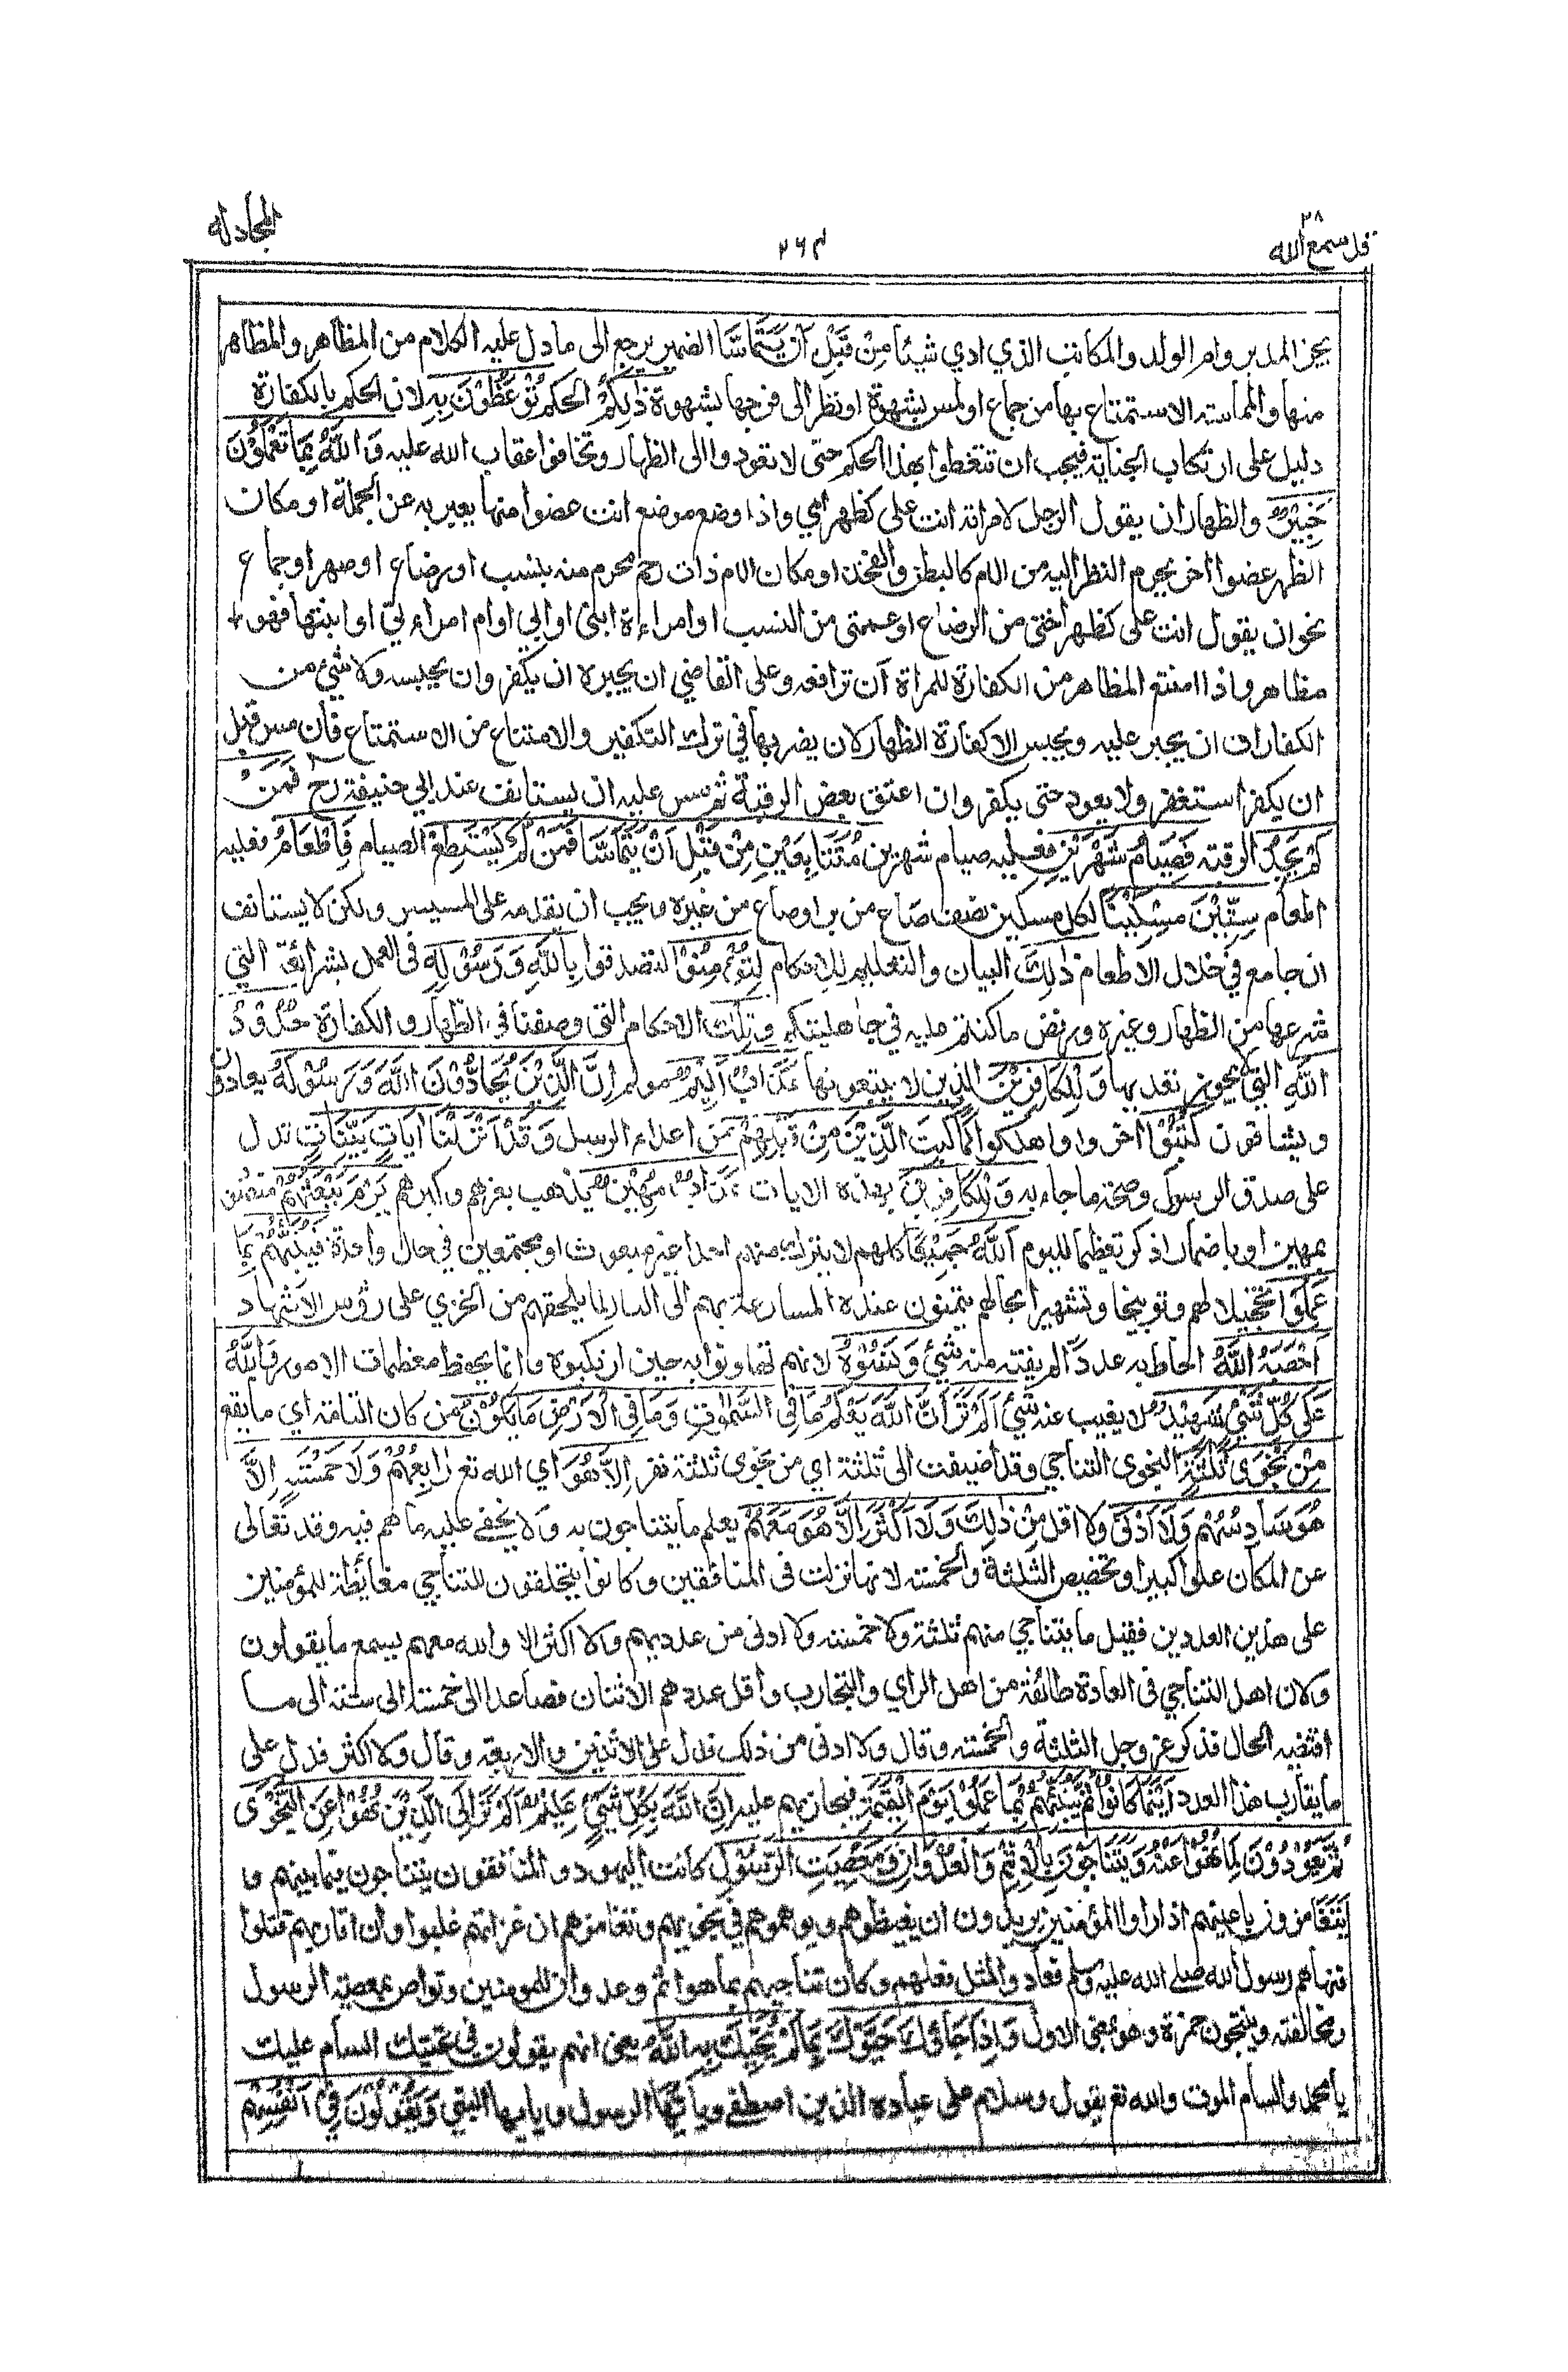 المجادلة
٢٦٤
٢٨
قد سمع الله
يجز المدبر وام الولد والمكاتب الذي ادي شيئا مِنْ قَبْلِ اَنْ يَّتَمَاسَّا الضمير يرجع الى ما دل عليه الكلام من المظاهر والمظاهر
منها والمماسة الاستمتاع بها من جماع او لمس بشهوة او نظر الى فرجها بشهوة ذٰلِكُمْ الحكم تُوْعَظُوْنَ بِهٖ لان الحكم بالكفارة
دليل على ارتكاب الجناية فيجب ان تتعظوا بهذا الحكم حتى لا تعودوا الى الظهار وتخافوا عقاب الله عليه وَاللّٰهُ بِمَا تَعْمَلُوْنَ
خَبِيْرٌ والظهار ان يقول الرجل لامراته انت على كظهر امي واذا وضع موضع انت عضوا منها يعبر به عن الجملة او مكان
الظهر عضوا اخر يحرم النظر اليه من الام كالبطن والفخذ او مكان الام ذات رحم محرم منه بنسب او رضاع او صهر او جماع
نحو ان يقول انت على كظهر اختى من الرضاع او عمتى من النسب او امراءة ابنى او ابي او ام امراءتي او ابنتها فهو
مظاهر واذا امتنع المظاهر من الكفارة للمراة ان ترافعه وعلى القاضي ان يجبره ان يكفر وان يحبسه ولا شيئ من
الكفارات ان يجبر عليه ويحبس الا كفارة الظهار لان يضر بها في ترك التكفير والامتناع من الاستمتاع فان مس قبل
ان يكفر استغفر ولا يعود حتى يكفر وان اعتق بعض الرقبة ثم مس عليه ان يستانف عند ابي حنيفة رح فَمَنْ
لَمْ يَجِدْ الرقبة فَصِيَامُ شَهْرَيْنِ فعليه صيام شهرين مُتَتَابِعَيْنِ مِنْ قَبْلِ اَنْ يَّتَمَاسَّا فَمَنْ لَمْ يَسْتَطِعْ الصيام فَاِطْعَامُ فعليه
اطعام سِتِّيْنَ مِسْكِيْنًا لكل مسكين نصف صاع من بر او صاع من غيره ويجب ان يقدمه على المسيس ولكن لا يستانف
ان جامع في خلال الاطعام ذٰلِكَ البيان والتعليم للاحكام لِتُؤْمِنُوْا لتصدقوا بِاللّٰهِ وَرَسُوْلِهٖ فى العمل بشرائعه التي
شرعها من الظهار وغيره ورفض ما كنتم عليه في جاهليتكم وَتِلْكَ الاحكام التى وصفنا في الظهار والكفارة حُدُوْدُ
اللّٰهِ التي لا يجوز تعديها وَلِلْكَافِرِيْنَ الذين لا يتبعونها عَذَابٌ اَلِيْمٌ مولم اِنَّ الَّذِيْنَ يُحَادُّوْنَ اللّٰهَ وَرَسُوْلَهٗ يعادون
ويشاقون كُبِتُوْا اخزوا واهلكوا كَمَا كُبِتَ الَّذِيْنَ مِنْ قَبْلِهِمْ من اعداء الرسل وَقَدْ اَنْزَلْنَا اٰيَاتٍ بَيِّنَاتٍ تدل
على صدق الرسول وصحة ما جاء به وَلِلْكَافِرِيْنَ بهذه الايات عَذَابٌ مُهِيْنٌ يذهب بعزهم وكبرهم يَوْمَ يَبْعَثُهُمْ منصوب
بمهين او باضمار اذكر تعظيما لليوم اللّٰهُ جَمِيْعًا كلهم لا يترك منهم احدا غير مبعوث او مجتمعين في حال واحدة فَيُنَبِّئُهُمْ بِمَا
عَمِلُوْا تخجيلا لهم وتوبيخا وتشهيرا بحالهم يتمنون عنده المسارعة بهم الى النار لما يلحقهم من الخزي على رؤس الاشهاد
اَحْصٰهُ اللّٰهُ احاط به عددا لم يفته منه شيئ وَنَسُوْهُ لانهم تهاونوا به حين ارتكبوه وانما يحفظ معظمات الامور وَاللّٰهُ
عَلٰى كُلِّ شَيْئٍ شَهِيْدٌ لا يغيب عنه شيئ اَلَمْ تَرَ اَنَّ اللّٰهَ يَعْلَمُ مَا فِى السَّمٰوٰتِ وَمَا فِى الْاَرْضِ مَا يَكُوْنُ من كان التامة اي ما يقع
مِنْ نَجْوٰى ثَلٰثَةٍ النجوى التناجي وقد اضيفت الى ثلثة اي من نجوى ثلثة نفر اِلَّا هُوَ اي الله تع رَابِعُهُمْ وَلَا خَمْسَةٍ اِلَّا
هُوَ سَادِسُهُمْ وَلَا اَدْنٰى ولا اقل مِنْ ذٰلِكَ وَلَا اَكْثَرَ اِلَّا هُوَ مَعَهُمْ يعلم ما يتناجون به ولا يخفى عليه ما هم فيه وقد تعالى
عن المكان علوا كبيرا وتخصيص الثلثة والخمسة لانها نزلت فى المنافقين وكانوا يتحلقون للتناجي مغائظة للمؤمنين
على هذين العددين فقيل ما يتناجي منهم ثلثة ولا خمسة ولا ادنى من عدديهم ولا اكثر الا والله معهم يسمع ما يقولون
ولان اهل التناجي فى العادة طائفة من اهل الراي والتجارب واقل عددهم الاثنان فصاعدا الى خمسة الى ستة الى ما
اقتضه الحال فذكر عز وجل الثلثة والخمسة وقال ولا ادنى من ذلك فدل على الاثنين والاربعة وقال ولا اكثر فدل على
ما يقارب هذا العدد اَيْنَمَا كَانُوْا ثُمَّ يُنَبِّئُهُمْ بِمَا عَمِلُوْا يَوْمَ الْقِيٰمَةِ فيجازيهم عليه اِنَّ اللّٰهَ بِكُلِّ شَيْئٍ عَلِيْمٌ اَلَمْ تَرَ اِلَى الَّذِيْنَ نُهُوْا عَنِ النَّجْوٰى
ثُمَّ يَعُوْدُوْنَ لِمَا نُهُوْا عَنْهُ وَيَتَنَاجَوْنَ بِالْاِثْمِ وَالْعُدْوَانِ وَمَعْصِيَتِ الرَّسُوْلِ كانت اليهود والمنافقون يتناجون فيما بينهم و
يتغامزون باعينهم اذا راوا المؤمنين يريدون ان يغيظوهم ويوهموهم في نجويهم وتغامزهم ان غزاتهم غلبوا وان اقاربهم قتلوا
فنهاهم رسول الله صلى الله عليه وسلم فعادوا لمثل فعلهم وكان تناجيهم بما هو اثم وعدوان للمومنين وتواص بمعصية الرسول
ومخالفته وينتجون حمزة وهو بمعنى الاول وَاِذَا جَاءُوْكَ حَيَّوْكَ بِمَا لَمْ يُحَيِّكَ بِهِ اللّٰهُ يعنى انهم يقولون فى تحيتك السام عليك
يا محمد والسام الموت والله تع يقول وسلام على عباده الذين اصطفى ويا ايها الرسول ويا ايها النبي وَيَقُوْلُوْنَ فِيْ اَنْفُسِهِمْ